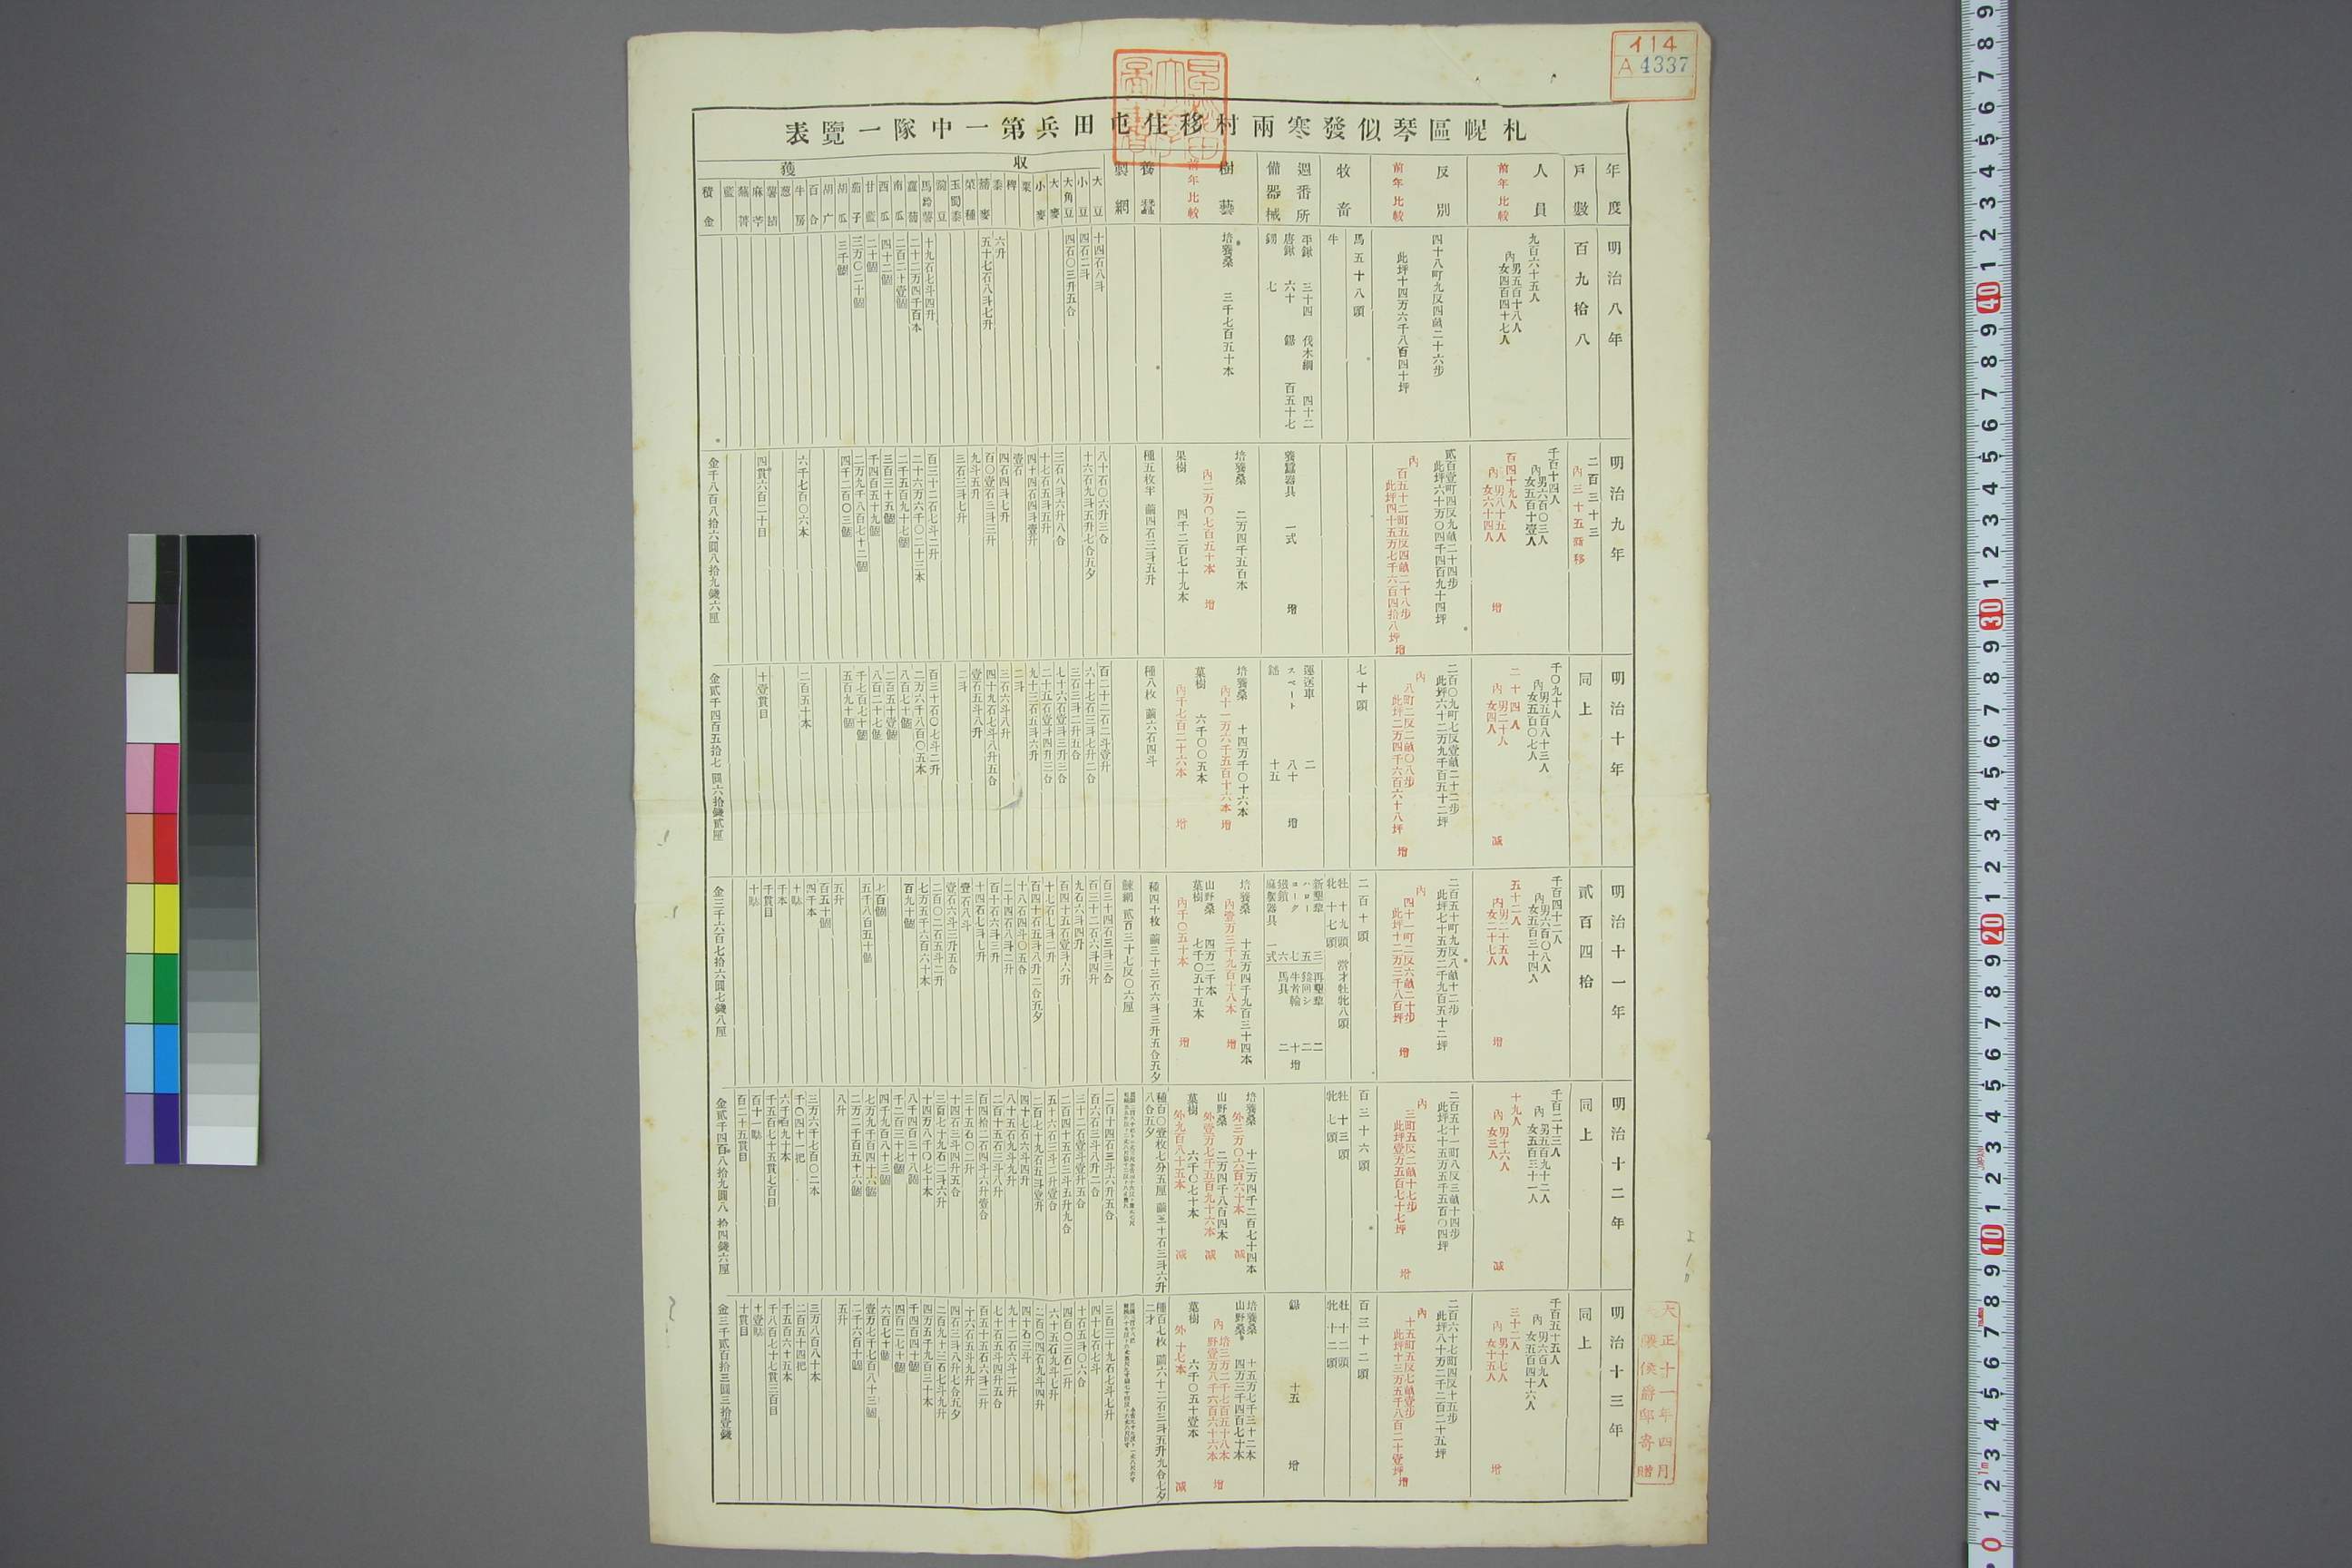 イ14
A 4337
札幌區琴似發寒兩村移住屯田兵第一中隊一覽表
年度
戶數
人員
前年比較
反別
前年比較
牧畜
週番所備器械
樹藝
前年比較
養蠶
製網
收穫
大豆
小豆
大角豆
大麥
小麥
粟
稗
黍
蕎麥
菜種
玉蜀黍
豌豆
馬鈴薯
蘿蔔
南瓜
西瓜
甘藍
茄子
胡瓜
百合
牛房
葱
積金
明治八年
百九拾八
九百六十五人
內 男五百十八人
女四百四十七人
四十八町九反四畝二十六步
此坪十四万六千八百四十坪
馬五十八頭
牛
平鍬 三十四 伐木鋼 四十二
唐鍬 六十 鋸 百五十七
培養桑 三千七百五十本
十四石八斗
四石二斗
四石〇三升五合
六升
五十七石八斗七升
十九石七斗四升
二十二万四千百本
二百二十壹個
四十二個
二十個
三万〇二十個
三千個
明治九年
二百三十三
內三十五新移
千百十四人
內 男六百〇三人
女五百十壹人
百四十九人
內 男八十五人
女六十四人 增
貳百壹町四反九畝二十四步
此坪六十万〇四千四百九十四坪
內 百五十二町五反四畝二十八步
此坪四十五万七千六百四拾八坪 增
養蠶器具 一式 增
培養桑 二万四千五百本
內二万〇七百五十本 增
果樹 四千二百七十九本
種五枚半 繭四石三斗五升
八十石〇六升三合
十六石九斗五升七合五夕
三石八斗六升八合
十七石五斗五升
四十四石四斗壹升
壹石
四石四斗七升
百〇壹石三斗三升
九斗五升
三石三斗七升
百三十二石七斗二升
二十六万六千〇二十三本
二千五百九十七個
三百三十五個
千四百五十九個
二万九千八百七十二個
四千二百〇三個
六千七百〇六本
四貫六百二十目
金千八百八拾六圓八拾九錢六厘
明治十年
同上
千〇九十人
內 男五百八十三人
女五百〇七人
二十四人
內 男二十人
女四人 減
二百〇九町七反壹畝二十二步
此坪六十二万九千百五十二坪
內 八町二反二畝〇八步
此坪二万四千六百六十八坪 增
七十頭
運送車 二
スペート 八十
鎌 十五 增
培養桑 十四万千〇十六本
內十一万六千五百十六本 增
菓樹 六千〇〇五本
內千七百二十六本 增
種八枚 繭六石四斗
百二十二石二斗壹升
六十七石三斗七升二合
三石三斗二升五合
七十六石壹斗三升三合
二十五石壹斗四升三合
九十三石五斗六升
二斗
三石六斗八升
四十九石七斗八升五合
壹石五斗八升
二斗
百三十石〇七斗二升
二万六千八百〇五本
八百七十個
二百五十壹個
八百二十七個
千七百七十個
五百九十個
二百五十本
十壹貫目
金貳千四百五拾七圓六拾錢貳厘
明治十一年
貳百四拾
千百四十二人
內 男六百〇八人
女五百三十四人
五十二人
內 男二十五人
女二十七人 增
二百五十町九反八畝十二步
此坪七十五万二千九百五十二坪
內 四十一町二反六畝二十步
此坪十二万三千八百坪 增
二百十頭
牡 十九頭 當才牡牝八頭
牝 十七頭
新墾犂 三 再墾犂 二
培養桑 十五万四千九百三十四本
內壹万三千九百十八本 增
山野桑 四万二千本
菓樹 七千〇五十五本
內千〇五十本 增
種四十枚 繭三十三石六斗三升五合五夕
鰊網 貳百三十七反〇六厘
百三十四石三斗三合
百三十二石六斗四升
九石六斗四升
百四十五石壹斗六升
十七石七斗二升
百四十石五斗八升二合五夕
十八石四斗〇五合
二十四石八斗二升
百十石六斗三升
十四石七斗七升
壹石八斗
壹石六斗三升五合
二百〇二石五斗二升
七万五千六百六十本
百九十個
七百個
五千八百五十個
五升
百五十個
四千本
千本
千貫目
金三千六百七拾六圓七錢八厘
明治十二年
同上
千百二十三人
內 男五百九十二人
女五百三十一人
十九人
內 男十六人
女三人 減
二百五十一町八反三畝十四步
此坪七十五万五千五百〇四坪
內 三町五反二畝十七步
此坪壹万五百七十七坪 增
百三十六頭
牡 十三頭
牝 七頭
培養桑 十二万四千二百七十四本
外三万〇六百六十本 減
山野桑 二万四千八百四本
外壹万七千五百九十六本 減
菓樹 六千〇七十本
外九百八十五本 減
種百〇壹枚七分五厘 繭三十石三斗六升八合五夕
二百十四石三斗六升五合
百六石三斗八升二合
三十二石壹斗壹升五合
二百四十五石三斗五升九合
五十六石三斗二升壹合
二百七十九石五斗壹升
四十七石六斗四升
八十五石九斗九升
二百十五石三斗八升
百四拾二石四斗六升壹合
三十五石〇二升
十四石三斗四升五合
三百七十九石二斗六升
十四万八千〇七十本
八千四百三十八個
千二百三十七個
四千九百八十三個
七万九千四百四十六個
二万二千百五十六個
八升
三万六千七百〇二本
千〇四十一把
六千百九十本
千五百七十五貫七百目
百二十五貫目
金貳千四百八拾九圓八拾四錢六厘
明治十三年
同上
千百五十五人
內 男六百九人
女五百四十六人
三十二人
內 男十七人
女十五人 增
二百六十七町四反十五步
此坪八十万二千二百二十五坪
內 十五町五反七畝壹步
此坪十三万五千八百二十壹坪 增
百三十二頭
牡 十二頭
牝 十二頭
鋸 十五 增
培養桑 十五万七千三十二本
山野桑 四万三千四百七十本
內 培三万二千七百五十八本
野壹万八千六百六十六本 增
菓樹 六千〇五十壹本
外十七本 減
種百七枚 繭六十二石三斗五升九合七夕二才
三百三十九石七斗七升
四十七石七斗
十石五斗〇六合
四百〇三石二升
六十五石九斗七升
二百〇四石九斗四升
四十石三斗
九十二石六斗二升
七十石五斗四升五合
百五十五石六斗二升
十六石五斗九升
四石三斗八升七合五夕
二百九十三石七斗九升
四万五千九百三十本
千四百四十個
四百二十七個
六百七十個
壹万七千七百八十三個
二千六百十個
五升
三万八百八十本
二百五十四把
千五百六十五本
千八百七十七貫三百目
十貫目
金三千貳百拾三圓三拾壹錢
大正十一年四月
侯爵邸寄贈